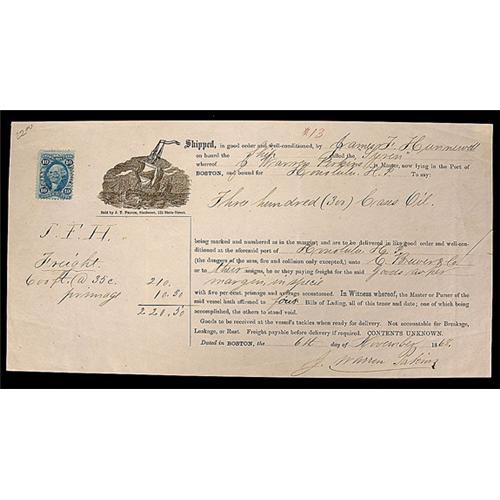 2200
#13
10 10
Shipped, in good order and well-conditioned, by James F. Hunnewell
on board the Ship called the Syren
whereof J. Warren Perkins is Master, now lying in the Port of
BOSTON, and bound for Honolulu H.I. To say:
Three hundred (300) Cases Oil.
Sold by J. T. 122 State Street.
J. F. H.
Freight
600 ft. @ 35c. 210.
primage 10.50
220.50
being marked and numbered as in the margin; and are to be delivered in like good order and well-condi-
tioned at the aforesaid port of Honolulu H.I.
(the dangers of the seas, fire and collision only excepted,) unto C. Brewer & Co
or to their assigns, he or they paying freight for the said Goods as per
margin, in specie
with five per cent. primage and average accustomed. In Witness whereof, the Master or Purser of the
said vessel hath affirmed to four Bills of Lading, all of this tenor and date; one of which being
accomplished, the others to stand void.
Goods to be received at the vessel's tackles when ready for delivery. Not accountable for Breakage,
Leakage, or Rust. Freight payable before delivery if required. CONTENTS UNKNOWN.
Dated in BOSTON, the 6th day of November 1868.
J. Warren Perkins